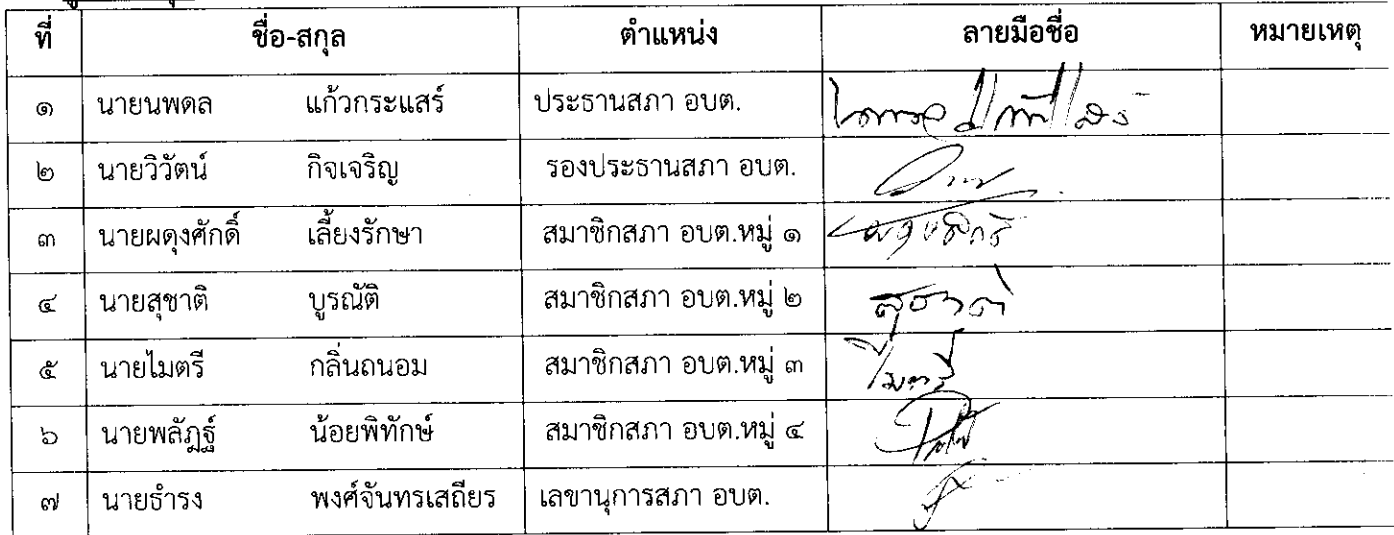 ที่ ชื่อ-สกุล ตำแหน่ง ลายมือชื่อ หมายเหตุ
๑ นายนพดล แก้วกระแสร์ ประธานสภา อบต.
๒ นายวิวัตน์ กิจเจริญ รองประธานสภา อบต.
๓ นายผดุงศักดิ์ เลี้ยงรักษา สมาชิกสภา อบต.หมู่ ๑ ผดุงศักดิ์
๔ นายสุชาติ บูรณัติ สมาชิกสภา อบต.หมู่ ๒ สุชาติ
๕ นายไมตรี กลิ่นถนอม สมาชิกสภา อบต.หมู่ ๓ ไมตรี
๖ นายพลัฏฐ์ น้อยพิทักษ์ สมาชิกสภา อบต.หมู่ ๔
๗ นายธำรง พงศ์จันทรเสถียร เลขานุการสภา อบต.